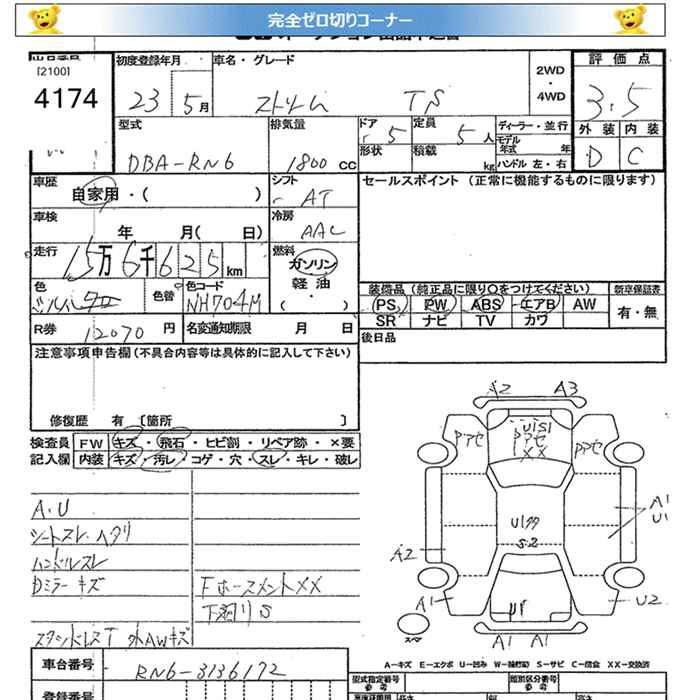 完全ゼロ切りコーナー
[2100]
4174
初度登録年月
23 5月
車名・グレード
ストリーム TS
2WD
・
4WD
評価点
3.5
外装 内装
D C
型式
DBA-RN6
排気量
1800 CC
ドア 5
形状
定員 5人
積載 kg
ディーラー・並行
モデル年式 年
ハンドル 左・右
車歴
自家用・( )
シフト
AT
セールスポイント (正常に機能するものに限ります)
車検
年 月( 日)
冷房
AAC
走行
15万6千625km
燃料
ガソリン
軽油
( ・ )
色
シルバー
色替
色コード
NH704M
装備品 (純正品に限り○をつけてください)
PS PW ABS エアB AW
SR ナビ TV カワ
新車保証書
有・無
R券 12070円
名変通知期限 月 日
後日品
注意事項申告欄(不具合内容等は具体的に記入して下さい)
修復歴 有 〔箇所 〕
検査員記入欄
FW キズ・飛石・ヒビ割・リペア跡・×要
内装 キズ・汚レ・コゲ・穴・スレ・キレ・破レ
A.U
シートスレ ヘタリ
ハンドルスレ
Dミラーキズ
Fホースメント XX
下廻りS
外AWキズ
A2 A3
U1S1
Pアセ Pアセ Pアセ
XX
A1
U1
S2
A2
A1 U2
A1 A1
スペア
A-キズ E-エクボ U-凹み W-補修跡 S-サビ C-腐食 XX-交換済
車台番号
RN6-3136172
型式指定番号
参考
類別区分番号
参考
登録番号